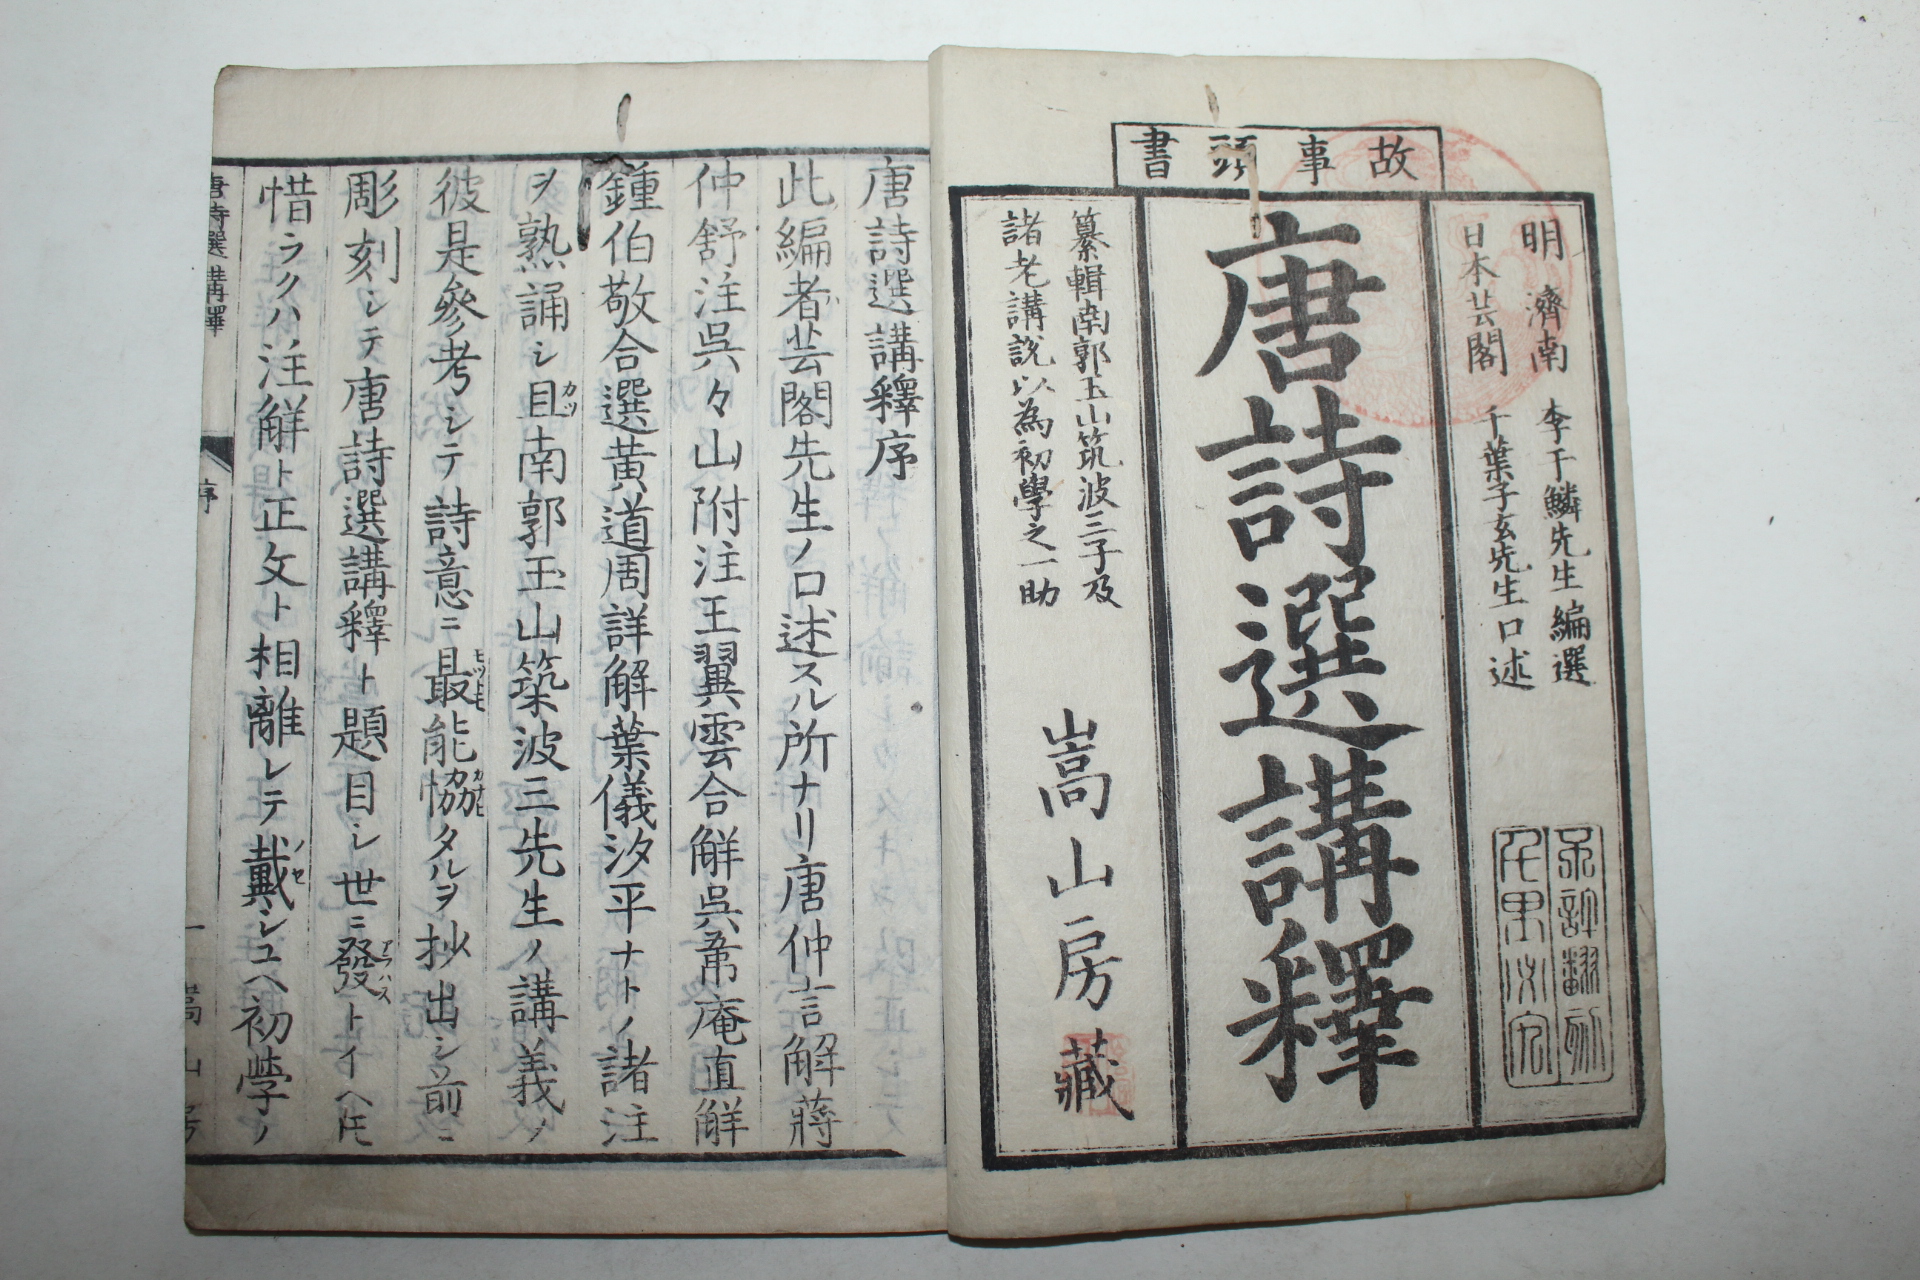 故事頭書
明 濟南 李于鱗先生編選
日本芸閣 千葉子玄先生口述
不許翻刻
千里必究
唐詩選講釋
纂輯南郭玉山筑波三子及
諸老講説以為初學之一助
嵩山房藏
唐詩選講釋序
此編者芸閣先生ノ口述スル所ナリ唐仲言解蔣
仲舒注呉々山附注王翼雲合解呉苐庵直解
鍾伯敬合選黄道周詳解葉儀汐平ナトノ諸注
ヲ熟誦シ且カツ南郭玉山築波三先生ノ講義ノ
彼是參考シテ詩意ニ最モツトモ能協カナヒタルヲ抄出シ前ニ
彫刻シテ唐詩選講釋ト題目シ世ニ發アラハストイヘ𪜈
惜ラクハ注解ト正文ト相離レテ戴ノセシユヘ初學ノ
唐詩選講釋
序
一
嵩山房